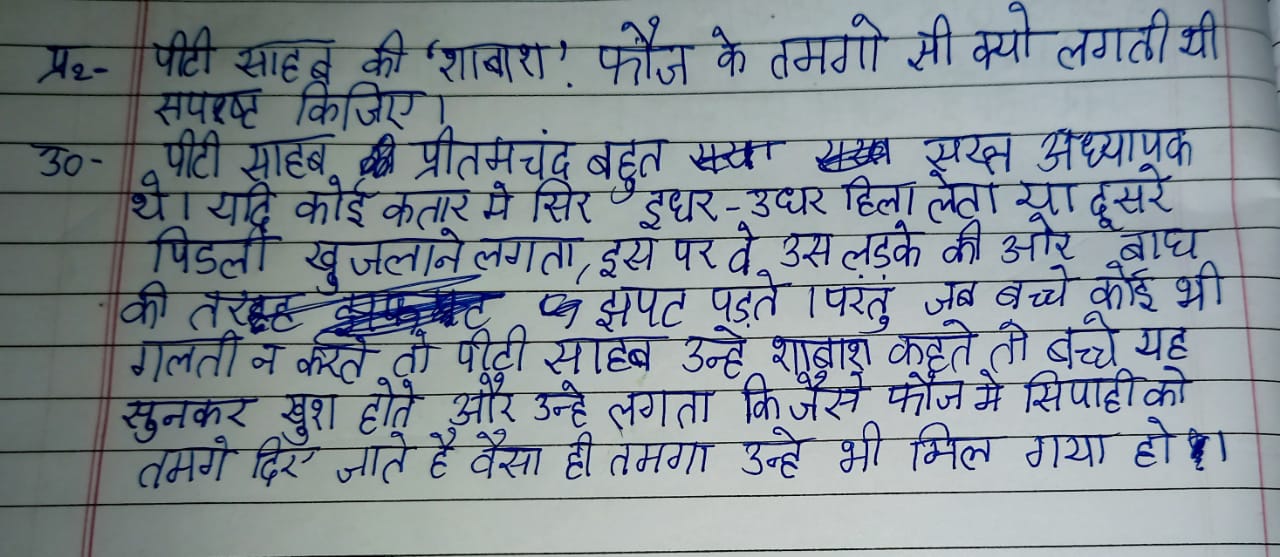 प्र2- पीटी साहब की 'शाबाश'. फौज के तमगो सी क्यो लगती थी
सपष्ट किजिए।
उ0- पीटी साहब प्रीतमचंद बहुत सख्त अध्यापक
थे। यदि कोई कतार मे सिर इधर-उधर हिला लेता या दूसरे
पिडली खुजलाने लगता, इस पर वे उस लड़के की ओर बाघ
की तरह झपट पड़ते। परंतु जब बच्चे कोई भी
गलती न करते तो पीटी साहब उन्हे शाबाश कहते तो बच्चे यह
सुनकर खुश होते और उन्हे लगता कि जैसे फौज मे सिपाही को
तमगे दिए जाते है वैसा ही तमगा उन्हे भी मिल गया हो।